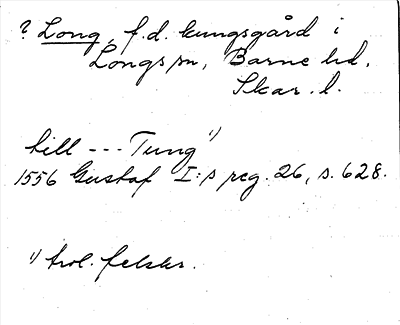 ? Long, f.d. kungsgård i
Longs sn, Barne hd.
Skar. l.
till --- Tung¹⁾
1556 Gustaf I:s reg. 26, s. 628.
¹⁾ trol. felskr.